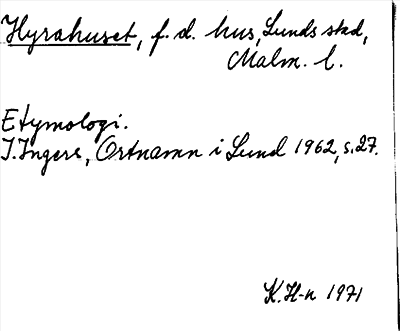 Hyrahuset, f. d. hus, Lunds stad,
Malm. l.
Etymologi.
I. Ingers, Ortnamn i Lund 1962, s. 27.
K. H-n 1971